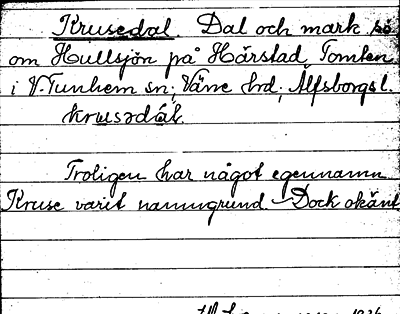 Krusedal Dal och mark sö.
om Hullsjön på Hårstad, Tomten
i V. Tunhem sn; Väne hrd; Älfsborgs l.
krusədál.
Troligen har något egennamn
Kruse varit namngrund. – Dock okänt